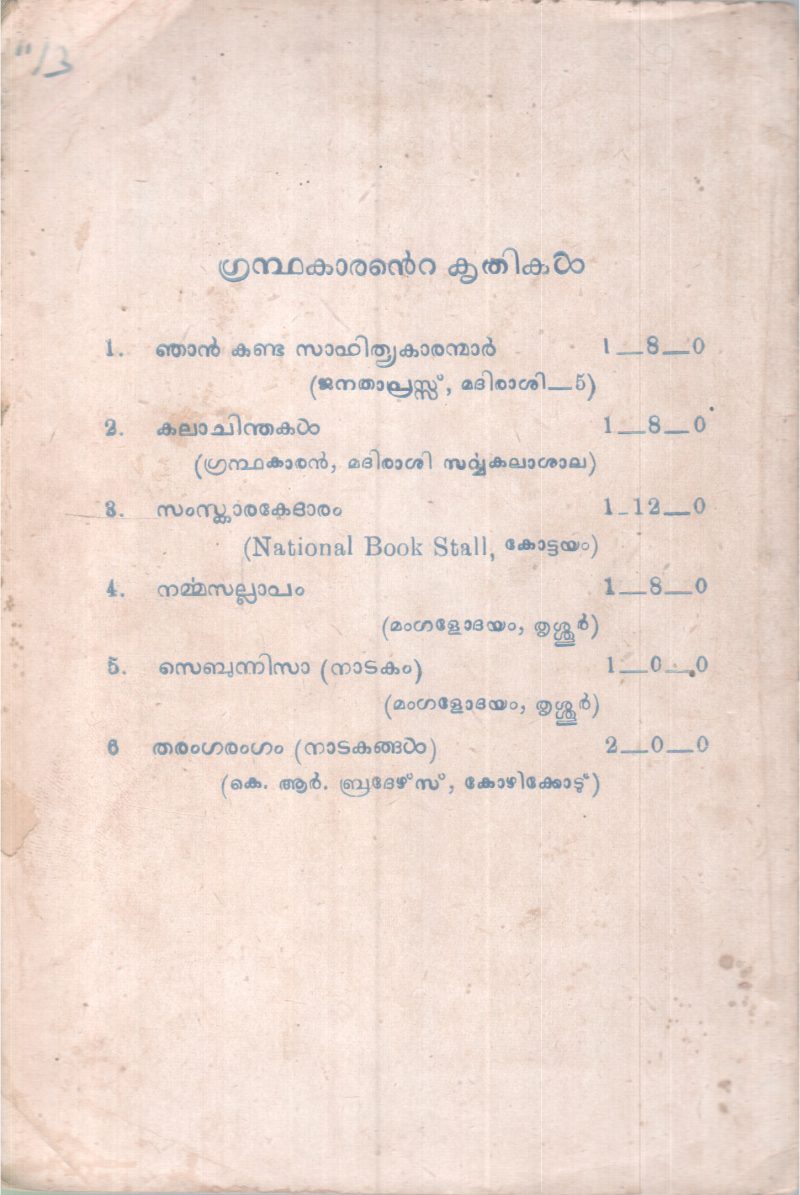 "/3
ഗ്രന്ഥകാരൻെറ കൃതികൾ
1. ഞാൻ കണ്ട സാഹിത്യകാരന്മാർ 1—8—0
(ജനതാപ്രസ്സ്, മദിരാശി—5)
2. കലാചിന്തകൾ 1—8—0
(ഗ്രന്ഥകാരൻ, മദിരാശി സർവ്വകലാശാല)
3. സംസ്കാരകേദാരം 1-12—0
(National Book Stall, കോട്ടയം)
4. നർമ്മസല്ലാപം 1—8—0
(മംഗളോദയം, തൃശ്ശൂർ)
5. സെബുന്നിസാ (നാടകം) 1—0—0
(മംഗളോദയം, തൃശ്ശൂർ)
6 തരംഗരംഗം (നാടകങ്ങൾ) 2—0—0
(കെ. ആർ. ബ്രദേഴ്സ്, കോഴിക്കോട്)